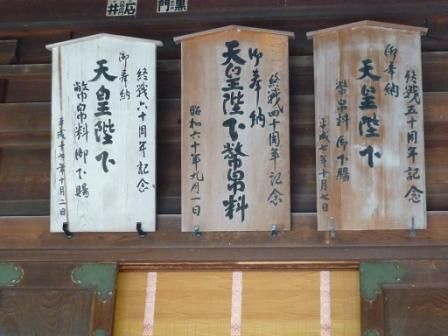 終戦五十周年記念
御奉納
天皇陛下
幣帛料御下賜
平成七年十月七日
終戦四十周年記念
御奉納
天皇陛下幣帛料
昭和六十年九月一日
終戦六十周年記念
御奉納
天皇陛下
幣帛料御下賜
平成十七年十月二日